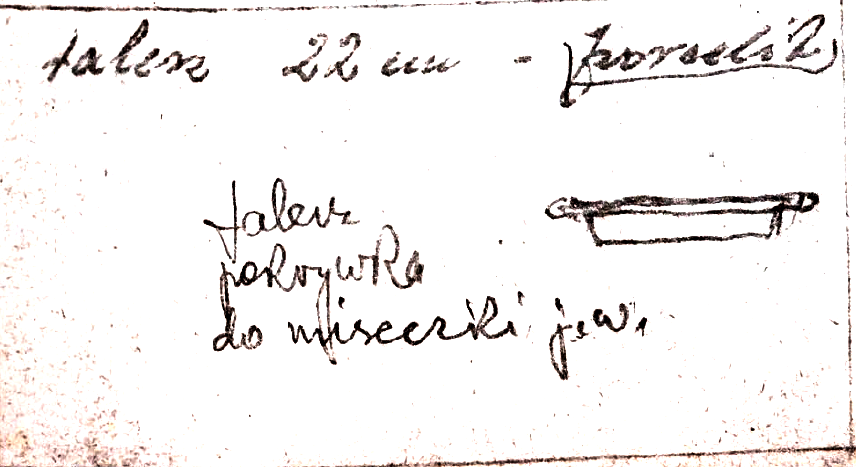 talerz 22 cm - porselit
talerz
pokrywka
do miseczki j.w.